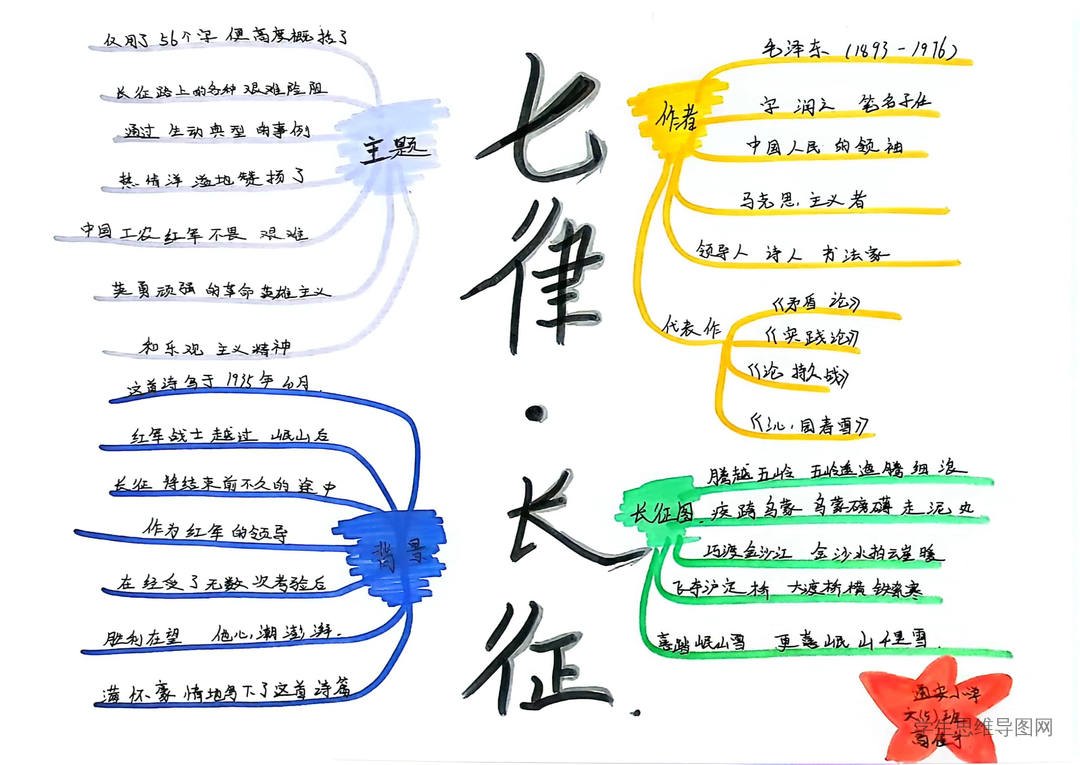 七律·长征
主题
仅用了56个字 便高度概括了
长征路上的各种艰难险阻
通过生动典型的事例
热情洋溢地赞扬了
中国工农红军不畏艰难
英勇顽强的革命英雄主义
和乐观主义精神
背景
这首诗写于1935年10月.
红军战士越过岷山后
长征将结束前不久的途中
作为红军的领导
在经受了无数次考验后
胜利在望 他心潮澎湃.
满怀豪情地写下了这首诗篇
作者
毛泽东 (1893-1976)
字 润之 笔名子任
中国人民的领袖
马克思主义者
领导人 诗人 书法家
代表作
《矛盾论》
《实践论》
《论持久战》
《沁园春雪》
长征图
腾越五岭 五岭逶迤腾细浪
疾跨乌蒙 乌蒙磅礴走泥丸
巧渡金沙江 金沙水拍云崖暖
飞夺泸定桥 大渡桥横铁索寒
喜踏岷山雪 更喜岷山千里雪
通安小学
六(5)班
学生思维导图网